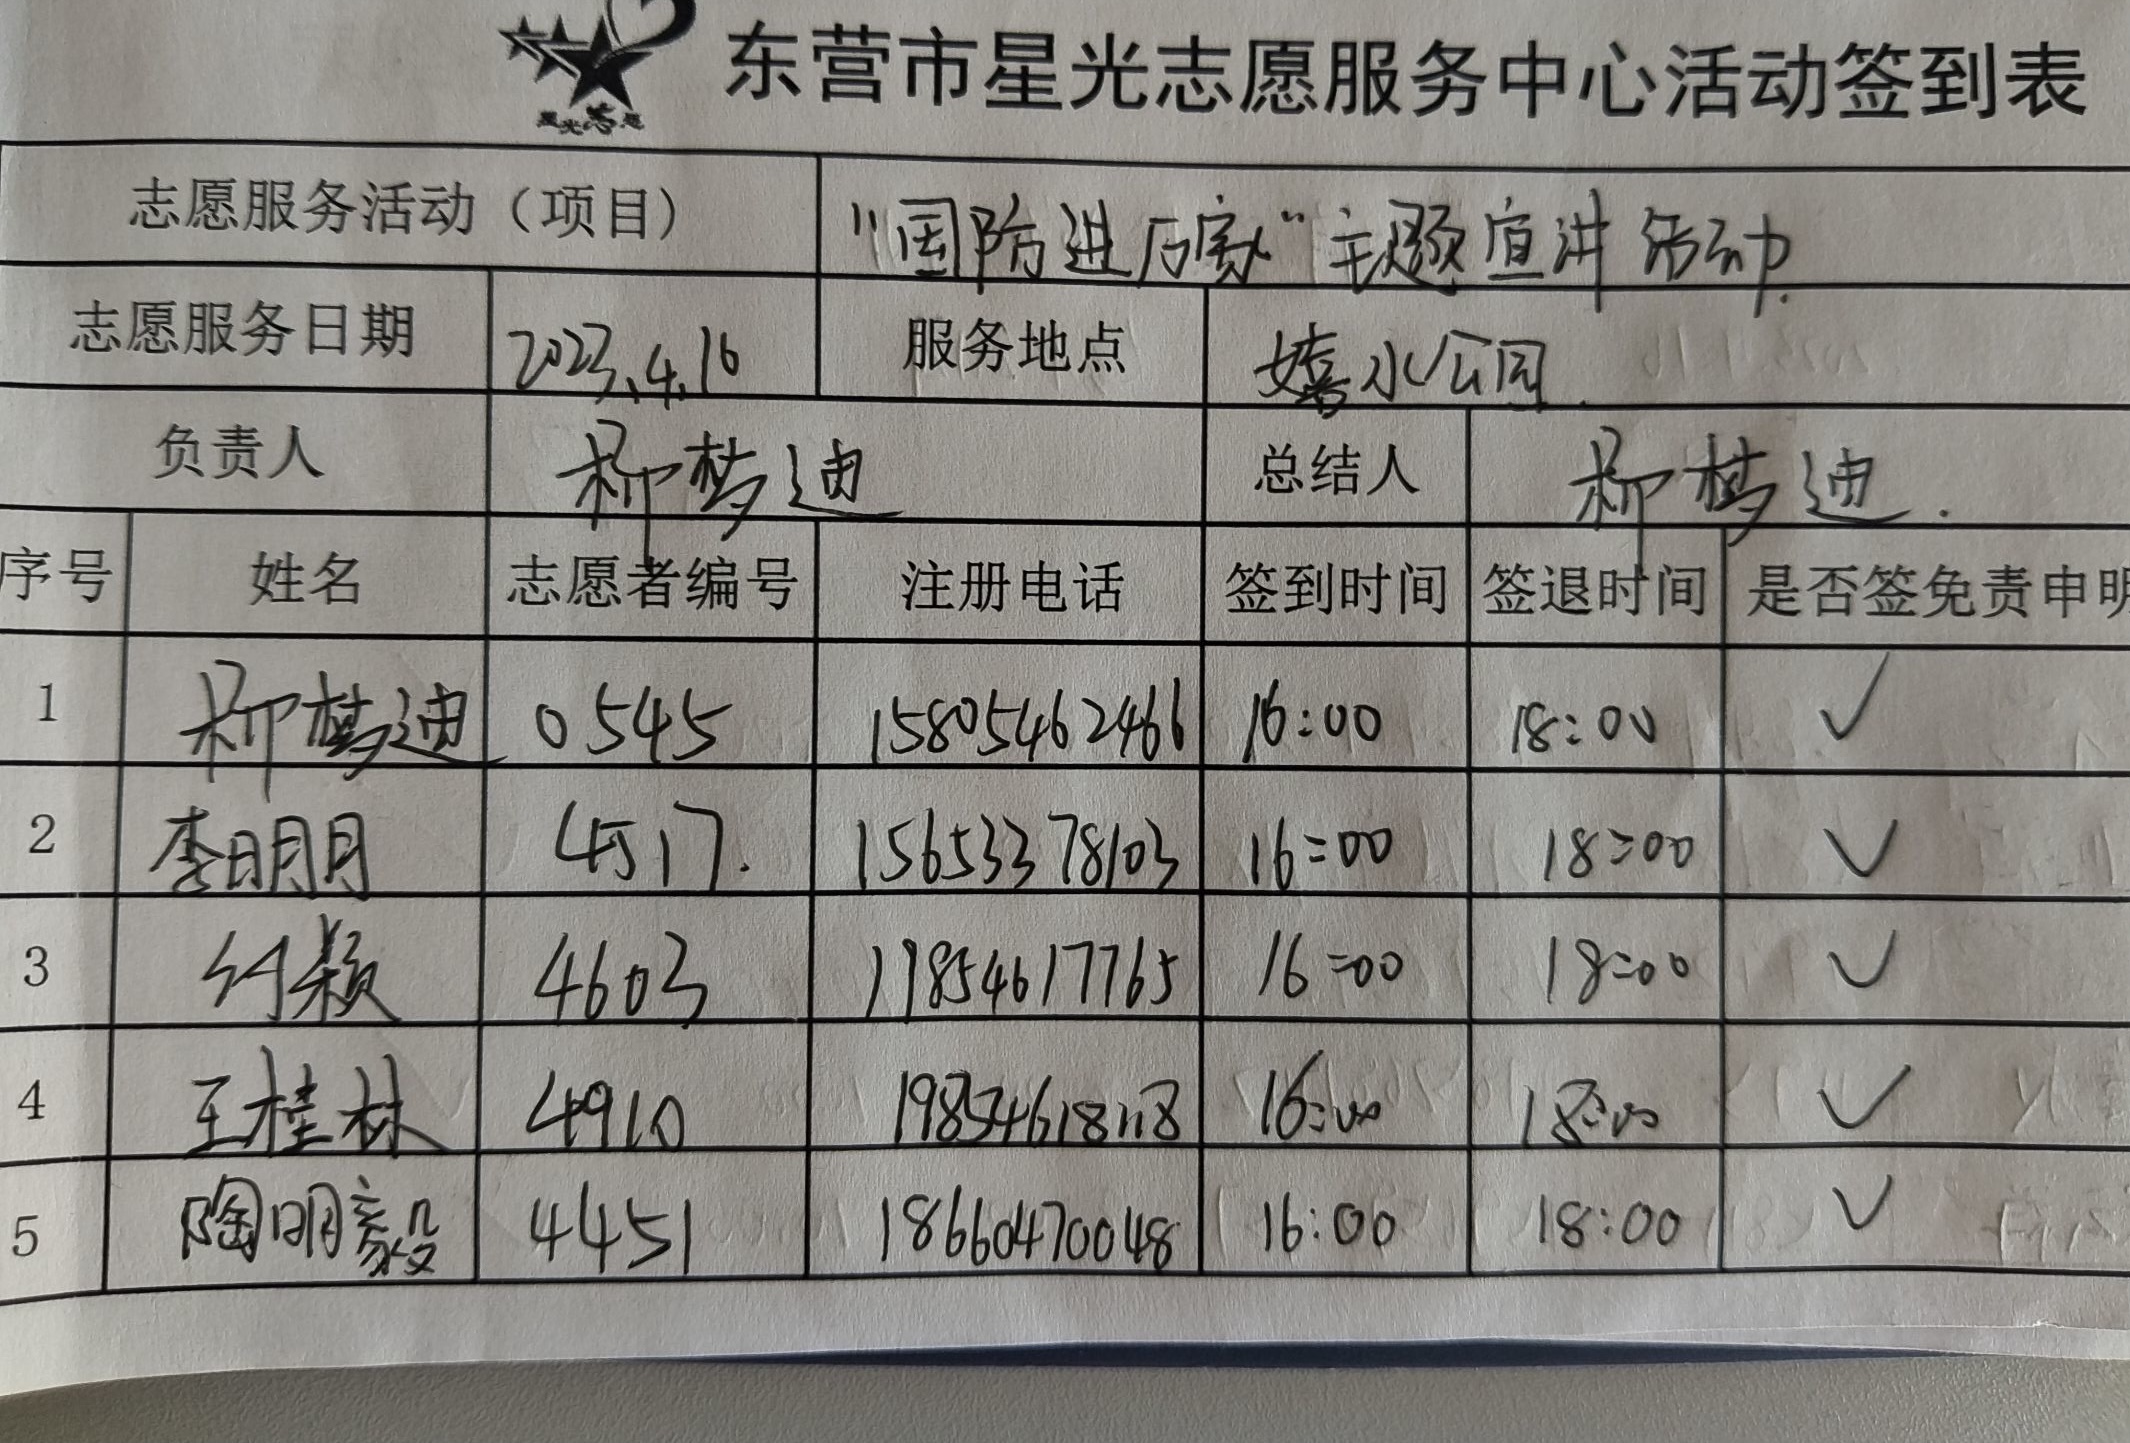 星光志愿
东营市星光志愿服务中心活动签到表
志愿服务活动（项目） “国防进万家”主题宣讲活动.
志愿服务日期 2023.4.16 服务地点 嬉水公园.
负责人 柳梦迪 总结人 柳梦迪.
序号 姓名 志愿者编号 注册电话 签到时间 签退时间 是否签免责申明
1 柳梦迪 0545 15805462466 16:00 18:00 ✓
2 李明月 4517. 15653378103 16:00 18:00 ✓
3 4603 16:00 18:00 ✓
4 王桂林 4910 19854618118 16:00 18:00 ✓
5 陶明毅 4451 18660470048 16:00 18:00 ✓